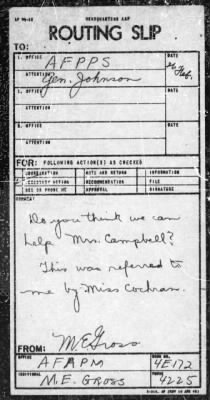 HEADQUARTERS AAF
ROUTING SLIP
TO:
1. OFFICE
AFPPS
DATE
Feb.
ATTENTION
Gen. Johnson
2. OFFICE
DATE
ATTENTION
3. OFFICE
DATE
ATTENTION
FOR: FOLLOWING ACTION(S) AS CHECKED
COORDINATION
NOTE AND RETURN
INFORMATION
NECESSARY ACTION
RECOMMENDATION
FILE
SEE OR PHONE ME
APPROVAL
SIGNATURE
REMARKS:
Do you think we can
help Mrs. Campbell?
This was referred to
me by Miss Cochran.
M E Gross
FROM:
OFFICE
AFAPM
ROOM NO.
4E172
INDIVIDUAL
M.E. GROSS
PHONE
4225